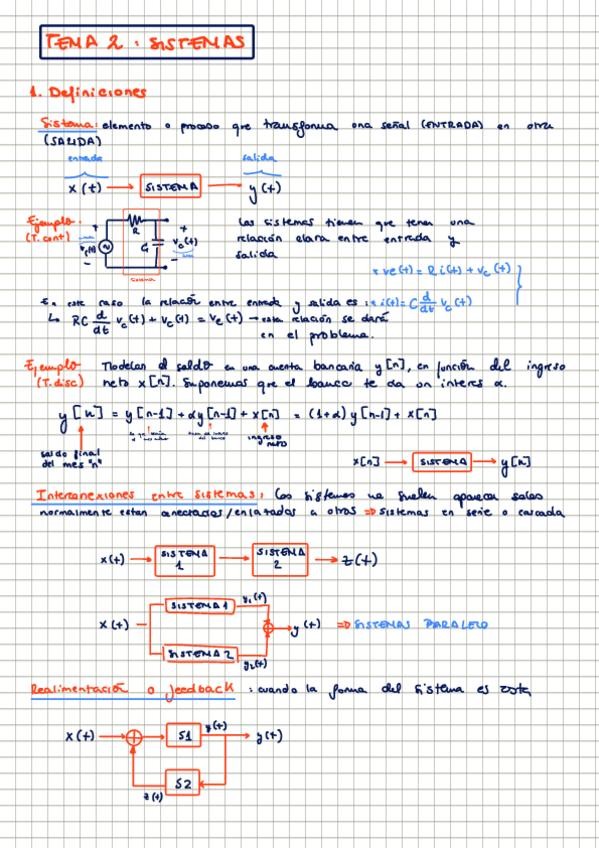 TEMA 2 : SISTEMAS
1. Definiciones
Sistema: elemento o proceso que transforma una señal (ENTRADA) en otra
(SALIDA)
entrada salida
x(t) → SISTEMA → y(t)
Ejemplo.
(T. cont)
R
+ + 
- -
Vc(t)
Los sistemas tienen que tener una
relación clara entre entrada y
salida
ve(t) = R i(t) + vc(t)
En este caso la relación entre entrada y salida es: i(t) = C d/dt vc(t)
↳ RC d/dt vc(t) + vc(t) = ve(t) → esta relación se dará
en el problema.
Ejemplo Modelan el saldo en una cuenta bancaria y[n], en función del ingreso
(T. disc) neto x[n]. Suponemos que el banco te da un interes α.
y[n] = y[n-1] + αy[n-1] + x[n] = (1+α) y[n-1] + x[n]
saldo final
del mes "n"
ingreso
neto
x[n] → SISTEMA → y[n]
Interconexiones entre sistemas: los sistemas no suelen aparecer solos
normalmente estan conectados/enlazados a otros ⇒ sistemas en serie o cascada
x(t) → SISTEMA 1 → SISTEMA 2 → z(t)
SISTEMA 1 y1(t)
x(t) y(t) ⇒ SISTEMAS PARALELO
SISTEMA 2 y2(t)
Realimentación o feedback : cuando la forma del sistema es esta
x(t) → ⊕ → S1 y(t) → y(t)
S2
z(t)